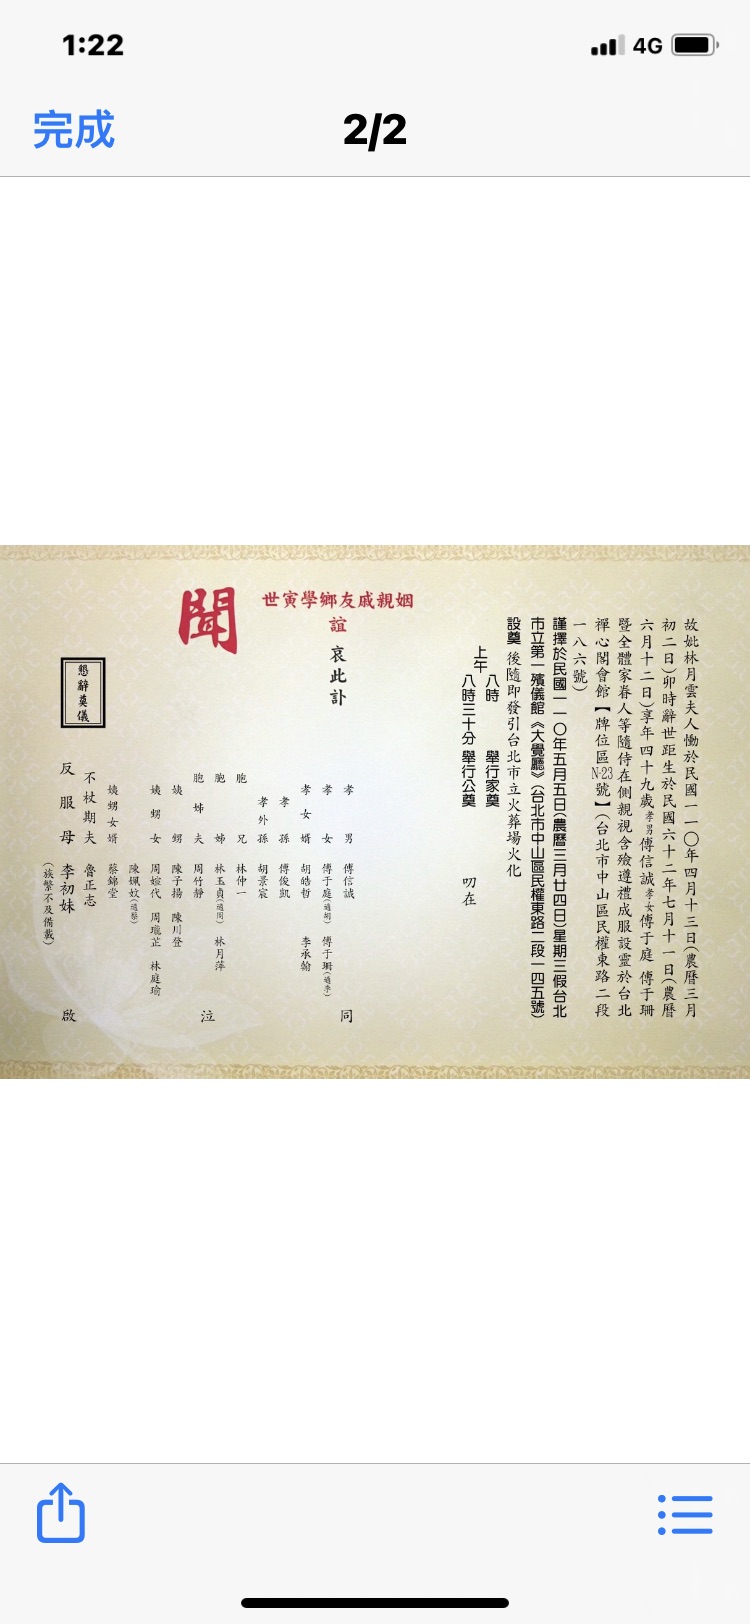 1:22
4G
完成
2/2
故妣林月雲夫人慟於民國一一〇年四月十三日(農曆三月
初二日)卯時辭世距生於民國六十二年七月十一日(農曆
六月十二日)享年四十九歲孝男傅信誠孝女傅于庭 傅于珊
暨全體家眷人等隨侍在側親視含殮遵禮成服設靈於台北
禪心閣會館【牌位區N-23號】(台北市中山區民權東路二段
一八六號)
謹擇於民國一一〇年五月五日(農曆三月廿四日)星期三假台北
市立第一殯儀館《大覺廳》(台北市中山區民權東路二段一四五號)
設奠 後隨即發引台北市立火葬場火化
上午
八時 舉行家奠
八時三十分 舉行公奠
叨在
姻親戚友鄉學寅世
誼
哀此訃
聞
孝男 傅信誠
孝女 傅于庭(適胡) 傅于珊(適李)
孝女婿 胡皓哲 李承翰
孝孫 傅俊凱
孝外孫 胡景宸
胞兄 林仲一
胞姊 林玉貞(適周) 林月萍
胞姊夫 周竹靜
姨甥 陳子揚 陳川登
姨甥女 周媗代 周瓏芷 林庭瑜
陳姵妏(適蔡)
姨甥女婿 蔡錦堂
不杖期夫 魯正志
反服母 李初妹
(族繁不及備載)
同
泣
啟
懇辭奠儀